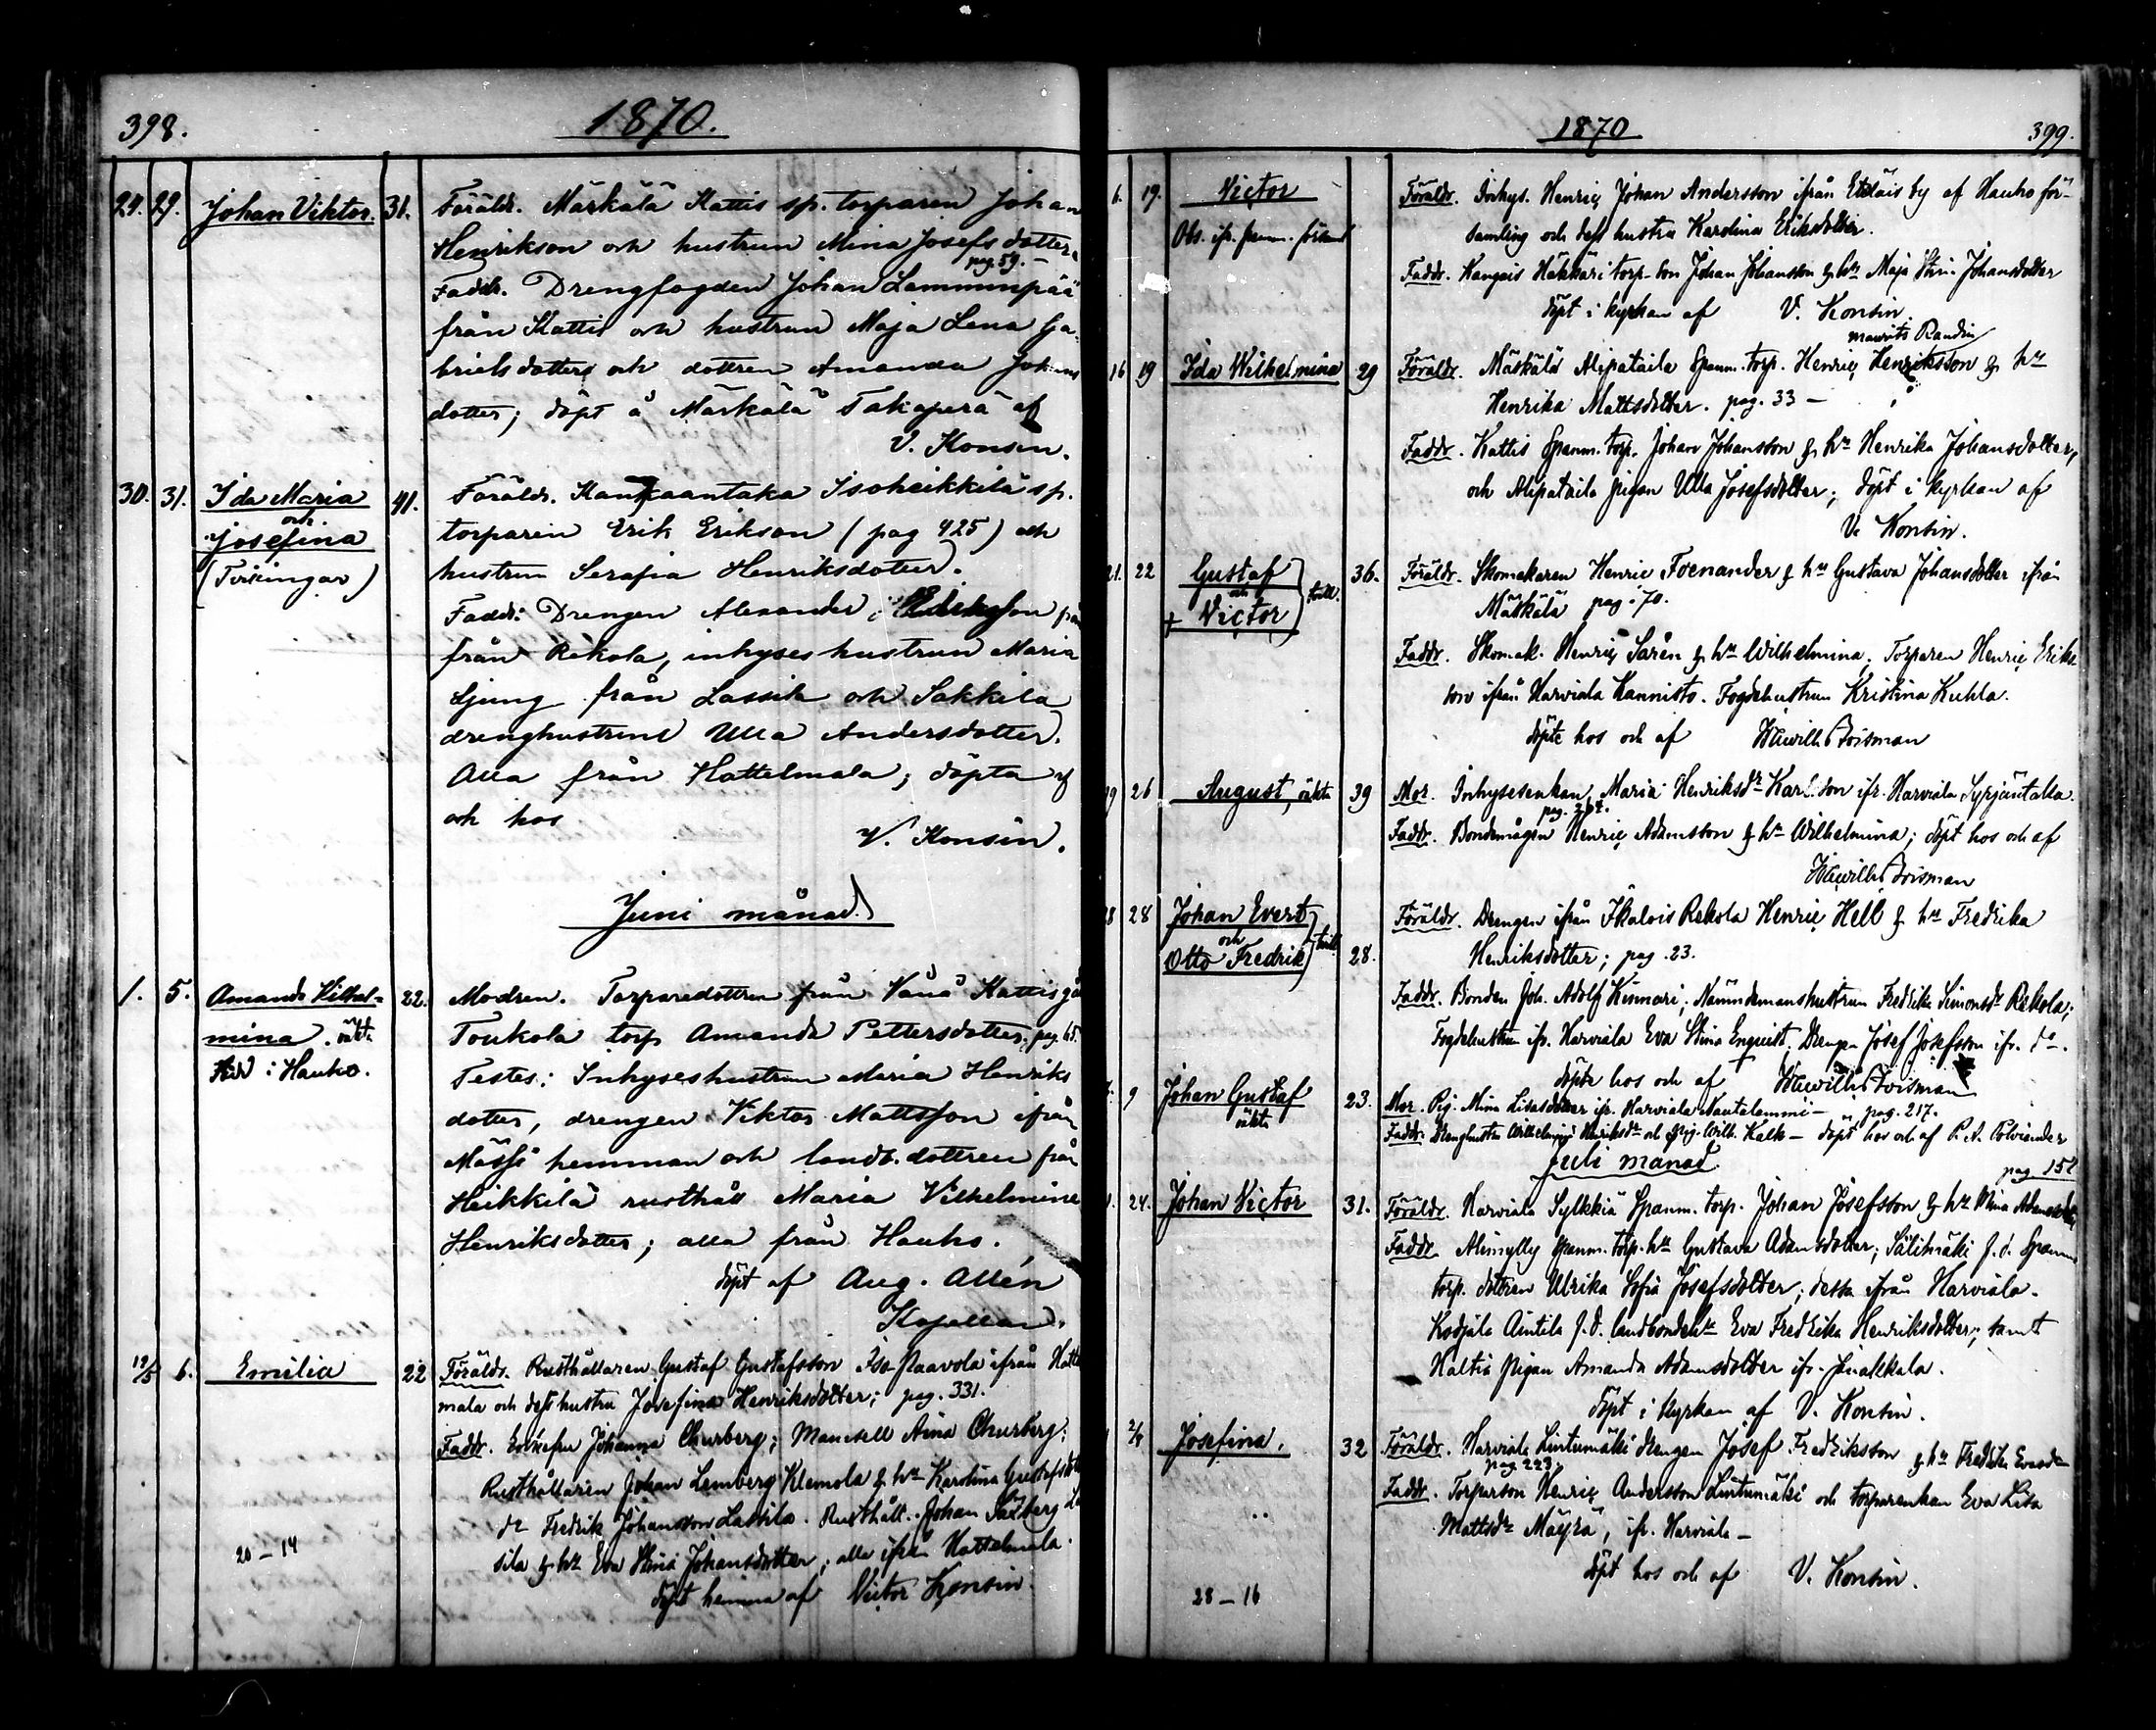 398.
1870.
24. 29. Johan Viktor. 31. Föräldr. Märkälä Kattis sp. torparen Johan
Henrikson och hustrun Mina Josefsdotter.
pag. 59. –
Faddr. Drengfogden Johan Lammunpää
från Kattis och hustrun Maja Lena Ga-
brielsdotter och dottren Amanda Johans
dotter; döpt å Märkälä Takaperä af
V. Konsin.
30. 31. Ida Maria 41. Föräldr. Kankaantaka Isoheikkilä sp.
och
Josefina torparen Erik Erikson (pag 425) och
(Tvillingar) hustrun Serafia Henriksdotter.
Faddr: Drengen Alexander
från Rekola, inhyses hustrun Maria
Ljung från Lassila och Sakkila
drenghustrun Ulla Andersdotter.
Alla från Hattelmala; döpta af
och hos
V. Konsin.
Juni månad.
1. 5. Amanda Vilhel- 22. Modren. Torparedottren från Vånå Kattis gå
mina. oäkta Toukola torp Amanda Pettersdotter. pag. 65.
född i Hauho. Testes: Inhyseshustrun Maria Henriks
dotter, drengen Viktor Mattsson ifrån
Mässi hemman och landb. dottren från
Heikkilä rusthåll Maria Vilhelmina
Henriksdotter; alla från Hauho.
döpt af Aug. Allén
Kapellan.
19/5 6. Emilia 22 Föräldr. Rusthållaren Gustaf Gustafsson Iso Paavola ifrån Hattel
mala och dess hustru Josefina Henriksdotter; pag. 331.
Faddr. Enkefru Johanna Churberg; Mamsell Aina Churberg;
Rusthållaren Johan Lemberg Klemola & hu Karolina Gustafsdotter
do Fredrik Johansson Lassila. Rusthåll. Johan Salberg
sila & hu Eva Stina Johansdotter; alla ifrån Hattelmala.
20 – 14
döpt hemma af Victor Konsin.
1870
399.
6. 19. Victor Föräldr. Inhys. Henric Johan Andersson ifrån Etelais by af Hauho för-
samling och dess hustru Karolina Eriksdotter.
Obs. ifr. fram. försam
Faddr. Kangais Häkkäri torp. son Johan Johansson & hu Maja Stin. Johansdotter
döpt i kyrkan af V. Konsin.
Maurits Randin
16 19 Ida Wilhelmina 29 Föräldr. Mäskälä Alipataila Spanm. torp. Henric Henriksson & hu
Henrika Mattsdotter. pag. 33 –
Faddr. Kattis Spanm. torp. Johan Johansson & hu Henrika Johansdotter,
och Alipataila pigan Ulla Josefsdotter; döpt i kyrkan af
V. Konsin.
21. 22 Gustaf 36. Föräldr. Skomakaren Henric Foenander & hu Gustava Johansdotter ifrån
och tvill.
+ Victor Mäskälä pag. 70.
Faddr. Skomak. Henric Sarén & hu Wilhelmina. Torparen Henric Eriks
son ifrån Harviala Kannisto. Fogdehustrun Kristina Kuhla.
döpte hos och af
19 26 August, oäkta 39 Mor. Inhysesenkan Maria Henriksdr Karlson ifr. Harviala Syrjäntaka.
pag. 204.
Faddr. Bondemågen Henric Adamsson & hu Wilhelmina; döpt hos och af
28 28 Johan Evert Föräldr. Drengen ifrån Ikalois Rekola Henric Hell & hu Fredrika
och tvill.
Otto Fredrik 28. Henriksdotter; pag. 23.
Faddr. Bonden Joh. Adolf Kinnari; Nämndemanshustrun Fredrika Simonsdr Rekola;
Fogdehustrun ifr. Harviala Eva Stina Enqvist. Drengen Josef Josefsson ifr. do.
döpte hos och af
9 Johan Gustaf 23. Mor. Pig. Mina Lisasdotter ifr. Harviala Nautalammi – pag. 217.
oäkta Faddr. Drenghustru Wilhelmina Henriksdr och pig. Wilh. Kalk – döpt hos och af
Juli månad
pag 152
24. Johan Victor 31. Föräldr. Harviala Sylkkiä Spanm. torp. Johan Josefsson & hu Mina Adamsdotter
Faddr. Alimylly spanm. torp. hu Gustava Adamsdotter; Sälimäki f. d. Spanm.
torp. dottren Ulrika Sofia Josefsdotter; dessa ifrån Harviala.
Kodjala Aintila f. d. landbondehu Eva Fredrika Henriksdotter; samt
Haltia pigan Amanda Adamsdotter ifr. Janakkala.
döpt i kyrkan af V. Konsin.
Josefina. 32 Föräldr. Harviala Lintumäki drengen Josef Fredriksson & hu Fredrika
pag 223.
Faddr. Torparson Henric Andersson Lintumäki och torparenkan Eva Lisa
Mattsdr Mäyrä, ifr. Harviala –
döpt hos och af V. Konsin.
28 – 16